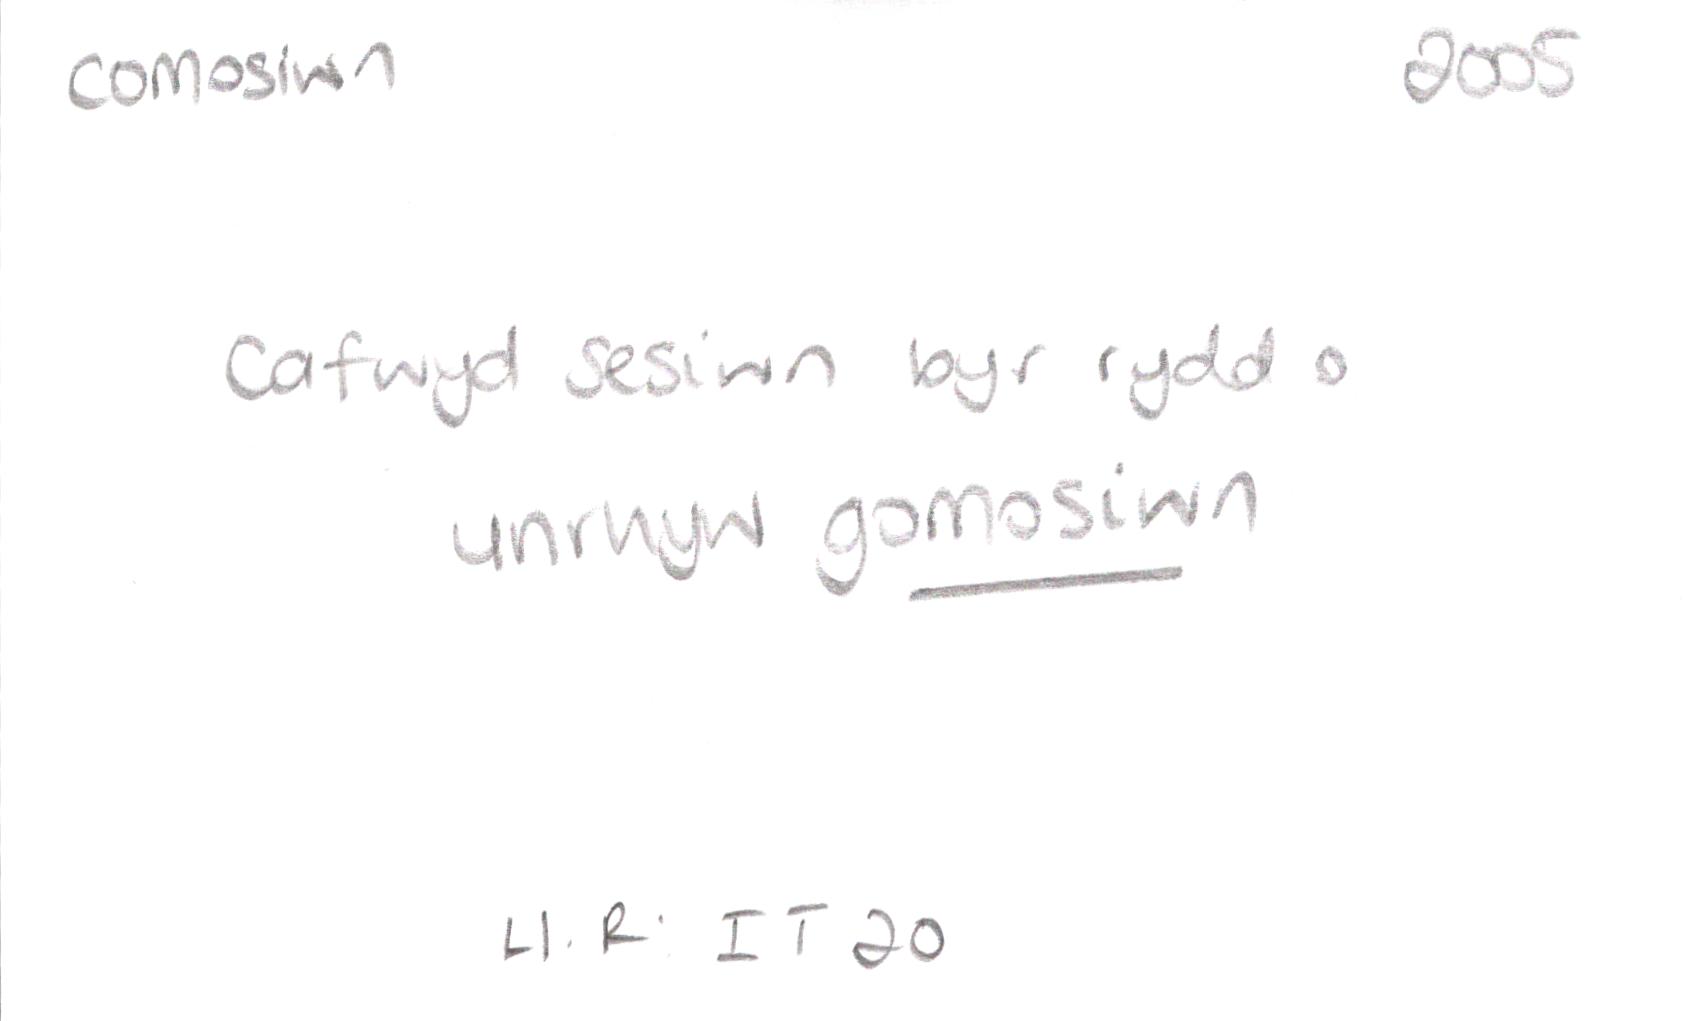 comosiwn 2005
Cafwyd sesiwn byr rydd o
unrhyw gomosiwn
Ll. R: IT 20